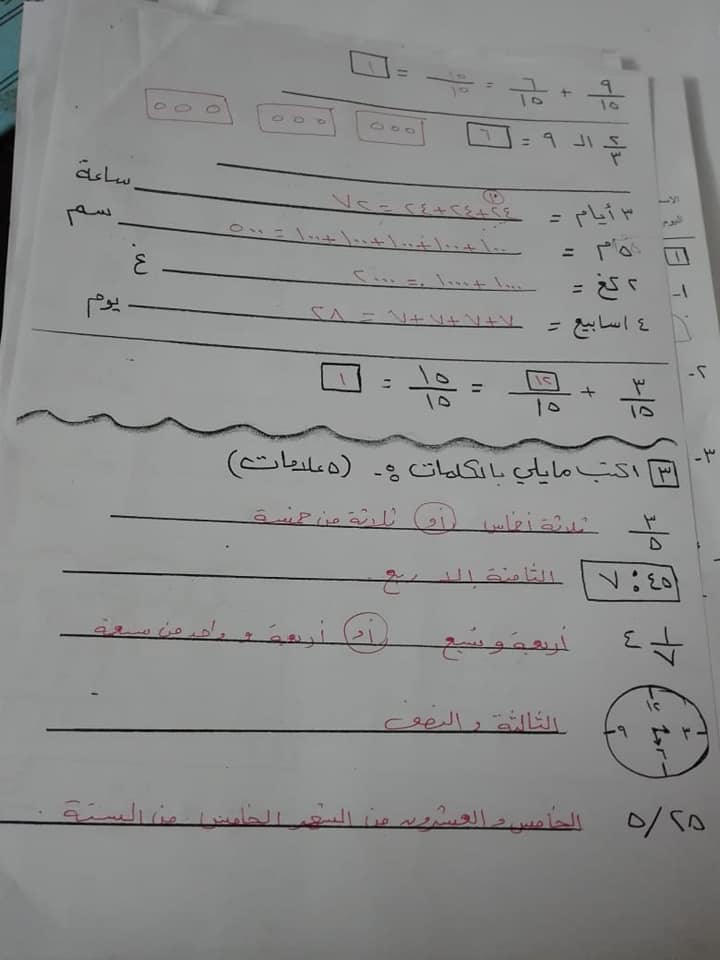 ٩/١٥ + ٦/١٥ = ١٥/١٥ = ١
٢/٣ الـ ٩ = ٦
٣ أيام = ٢٤+٢٤+٢٤ = ٧٢ ساعة
٥م = ١٠٠+١٠٠+١٠٠+١٠٠+١٠٠ = ٥٠٠ سم
٢ كغ = ١٠٠٠ + ١٠٠٠ = ٢٠٠٠ غ
٤ اسابيع = ٧+٧+٧+٧ = ٢٨ يوم
٣/١٥ + ١٢/١٥ = ١٥/١٥ = ١
٣ اكتب مايلي بالكلمات :- (٥ علامات)
٣/٥ ثلاثة أخماس أو ثلاثة من خمسة
٧:٤٥ الثامنة إلا ربع
٤ ١/٧ أربعة و سُبع أو أربعة و واحد من سبعة
١٢ ٣ ٩ الثالثة و النصف
٢٥/٥ الخامس و العشرون من الشهر الخامس من السنة
١
١-
٢-
٣-